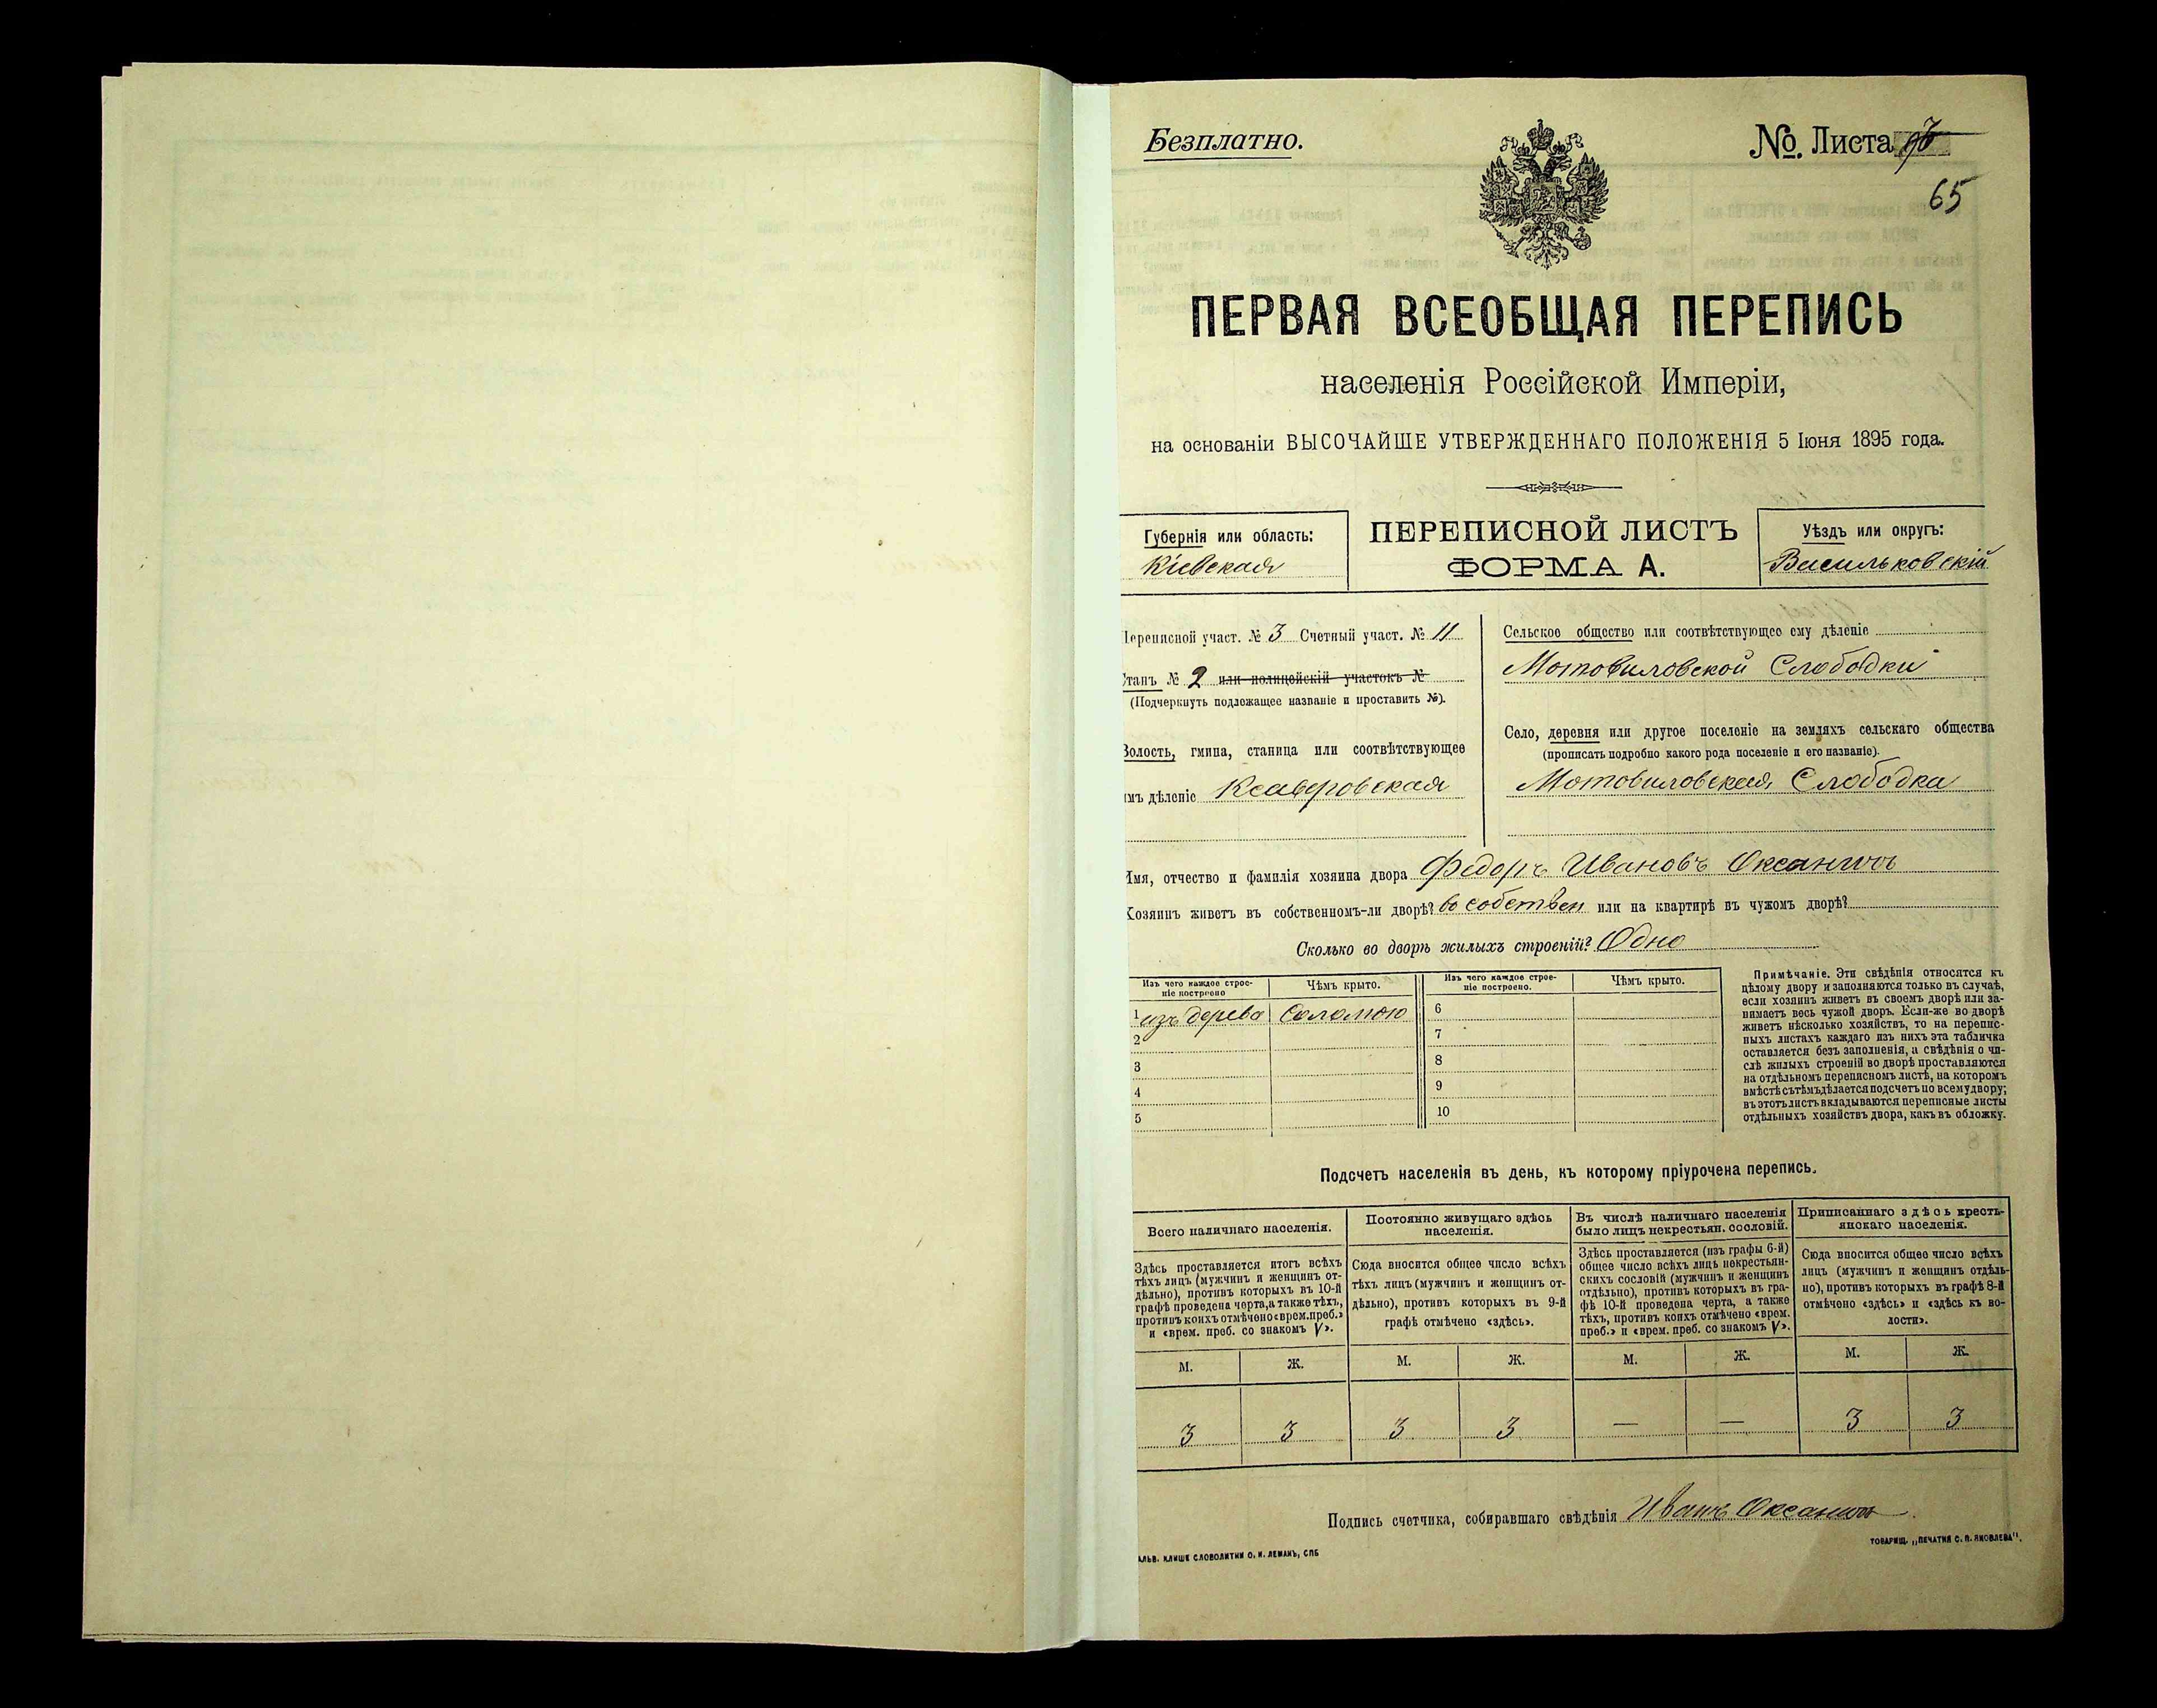 Безплатно.
№. Листа
65
ПЕРВАЯ ВСЕОБЩАЯ ПЕРЕПИСЬ
населенія Россійской Имперіи,
на основаніи ВЫСОЧАЙШЕ УТВЕРЖДЕННАГО ПОЛОЖЕНІЯ 5 Іюня 1895 года.
Губернія или область:
Кіевская
ПЕРЕПИСНОЙ ЛИСТЪ
ФОРМА А.
Уѣздъ или округъ:
Васильковскій
Переписной участ. № 3 Счетный участ. № 11
Станъ № 2 или полицейскій участокъ №
(Подчеркнуть подлежащее названіе и проставить №).
Волость, гмина, станица или соотвѣтствующее
имъ дѣленіе Ксаверовская
Сельское общество или соотвѣтствующее ему дѣленіе
Мотовиловской Слободки
Село, деревня или другое поселеніе на земляхъ сельскаго общества
(прописать подробно какого рода поселеніе и его названіе).
Мотовиловская Слободка
Имя, отчество и фамилія хозяина двора Федоръ Ивановъ Оксаничъ
Хозяинъ живетъ въ собственномъ-ли дворѣ? въ собствен или на квартирѣ въ чужомъ дворѣ?
Сколько во дворѣ жилыхъ строеній? Одно
Изъ чего каждое строе-
ніе построено
Чѣмъ крыто.
Изъ чего каждое строе-
ніе построено.
Чѣмъ крыто.
1 изъ дерева Соломою
2
3
4
5
6
7
8
9
10
Примѣчаніе. Эти свѣдѣнія относятся къ
цѣлому двору и заполняются только въ случаѣ,
если хозяинъ живетъ въ своемъ дворѣ или за-
нимаетъ весь чужой дворъ. Если-же во дворѣ
живетъ нѣсколько хозяйствъ, то на перепис-
ныхъ листахъ каждаго изъ нихъ эта табличка
оставляется безъ заполненія, а свѣдѣнія о чи-
слѣ жилыхъ строеній во дворѣ проставляются
на отдѣльномъ переписномъ листѣ, на которомъ
вмѣстѣ съ тѣмъ дѣлается подсчетъ по всему двору;
въ этотъ листъ вкладываются переписные листы
отдѣльныхъ хозяйствъ двора, какъ въ обложку.
Подсчетъ населенія въ день, къ которому пріурочена перепись.
Всего наличнаго населенія.
Здѣсь проставляется итогъ всѣхъ
тѣхъ лицъ (мужчинъ и женщинъ от-
дѣльно), противъ которыхъ въ 10-й
графѣ проведена черта, а также тѣхъ,
противъ коихъ отмѣчено «врем. преб.»
и «врем. преб. со знакомъ V».
Постоянно живущаго здѣсь
населенія.
Сюда вносится общее число всѣхъ
тѣхъ лицъ (мужчинъ и женщинъ от-
дѣльно), противъ которыхъ въ 9-й
графѣ отмѣчено «здѣсь».
Въ числѣ наличнаго населенія
было лицъ некрестьян. сословій.
Здѣсь проставляется (изъ графы 6-й)
общее число всѣхъ лицъ некрестьян-
скихъ сословій (мужчинъ и женщинъ
отдѣльно), противъ которыхъ въ гра-
фѣ 10-й проведена черта, а также
тѣхъ, противъ коихъ отмѣчено «врем.
преб.» и «врем. преб. со знакомъ V».
Приписаннаго здѣсь кресть-
янскаго населенія.
Сюда вносится общее число всѣхъ
лицъ (мужчинъ и женщинъ отдѣль-
но), противъ которыхъ въ графѣ 8-й
отмѣчено «здѣсь» и «здѣсь къ во-
лости».
М. Ж. М. Ж. М. Ж. М. Ж.
3 3 3 3 — — 3 3
Подпись счетчика, собиравшаго свѣдѣнія Иванъ Оксаничъ
АЛЬВ. КЛИШЕ СЛОВОЛИТНИ О. И. ЛЕМАНЪ, СПБ
ТОВАРИЩ. „ПЕЧАТНЯ С. П. ЯКОВЛЕВА".